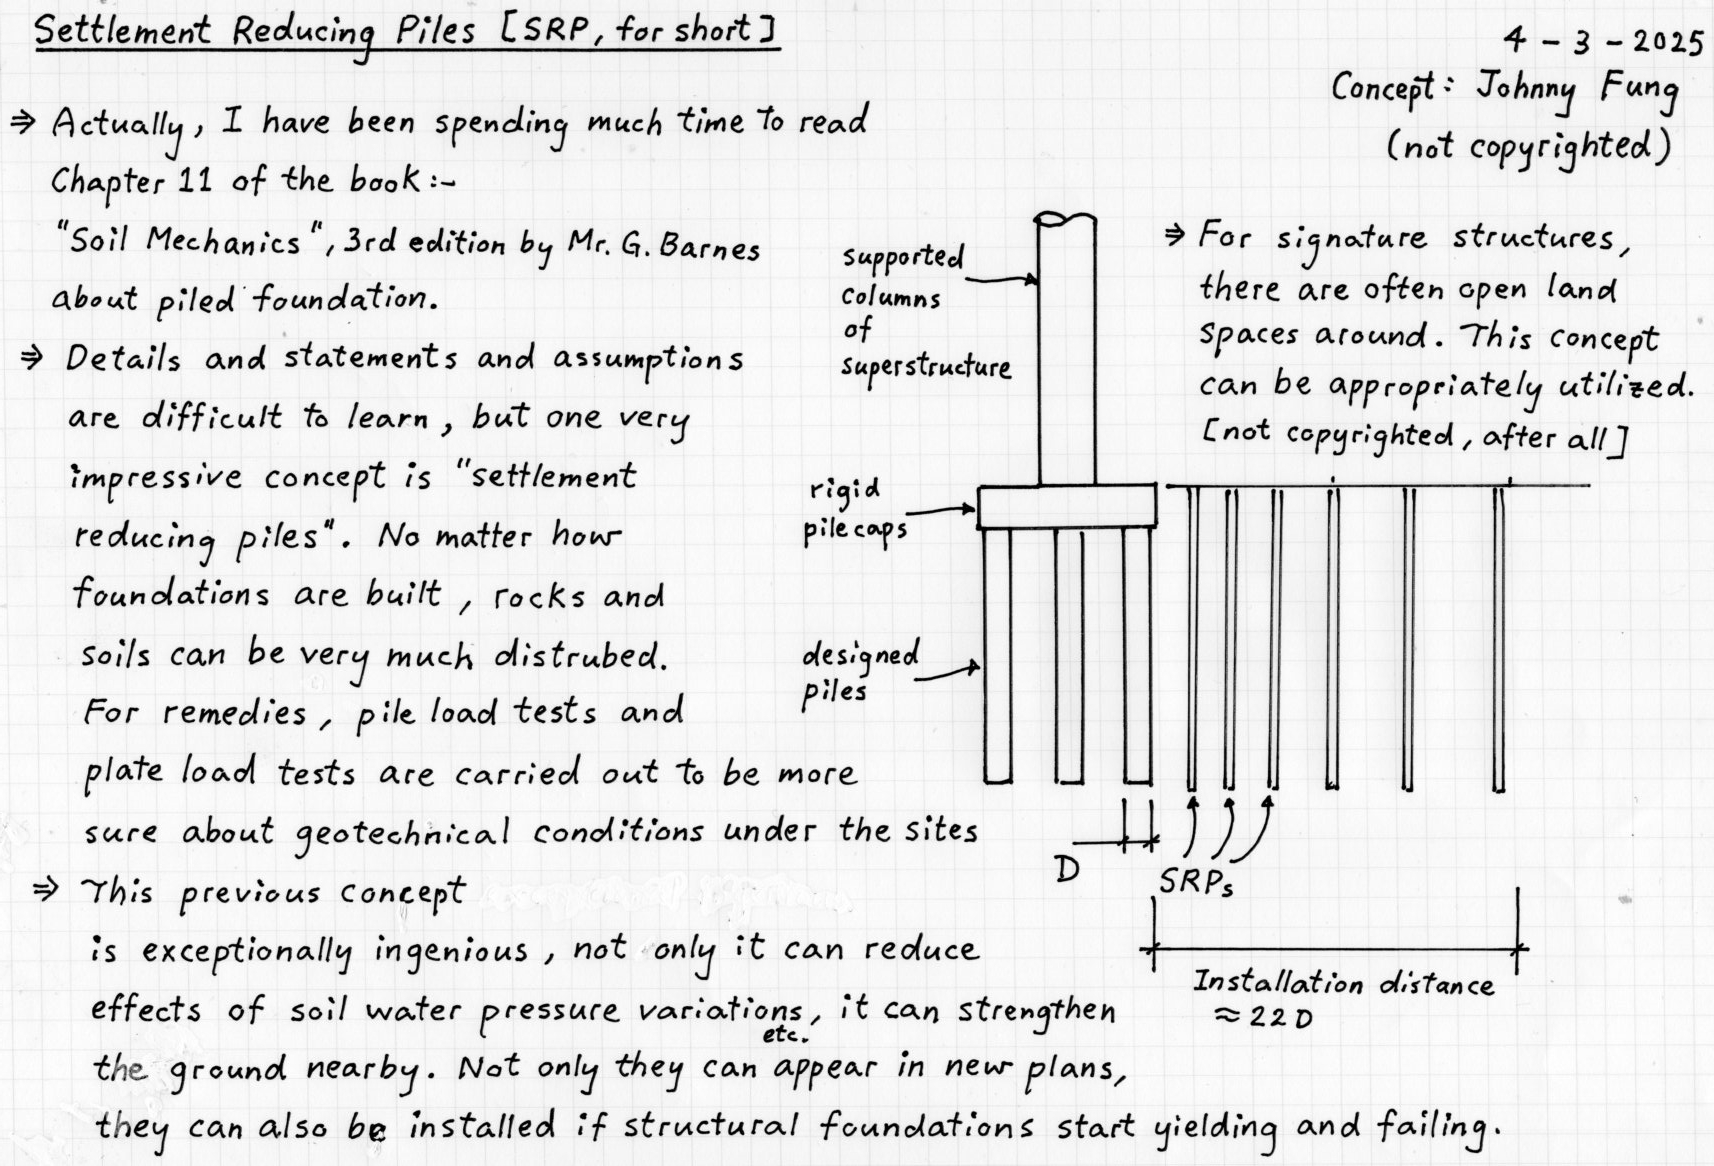 Settlement Reducing Piles [SRP, for short]
4 - 3 - 2025
Concept: Johnny Fung
(not copyrighted)
⇒ Actually, I have been spending much time to read
Chapter 11 of the book :-
"Soil Mechanics", 3rd edition by Mr. G. Barnes
about piled foundation.
⇒ Details and statements and assumptions
are difficult to learn, but one very
impressive concept is "settlement
reducing piles". No matter how
foundations are built, rocks and
soils can be very much distrubed.
For remedies, pile load tests and
plate load tests are carried out to be more
sure about geotechnical conditions under the sites
⇒ This previous concept
is exceptionally ingenious, not only it can reduce
effects of soil water pressure variations, it can strengthen
etc.
the ground nearby. Not only they can appear in new plans,
they can also be installed if structural foundations start yielding and failing.
supported
columns
of
superstructure
rigid
pile caps
designed
piles
D
SRPs
Installation distance
≈ 22 D
⇒ For signature structures,
there are often open land
spaces around. This concept
can be appropriately utilized.
[not copyrighted, after all]